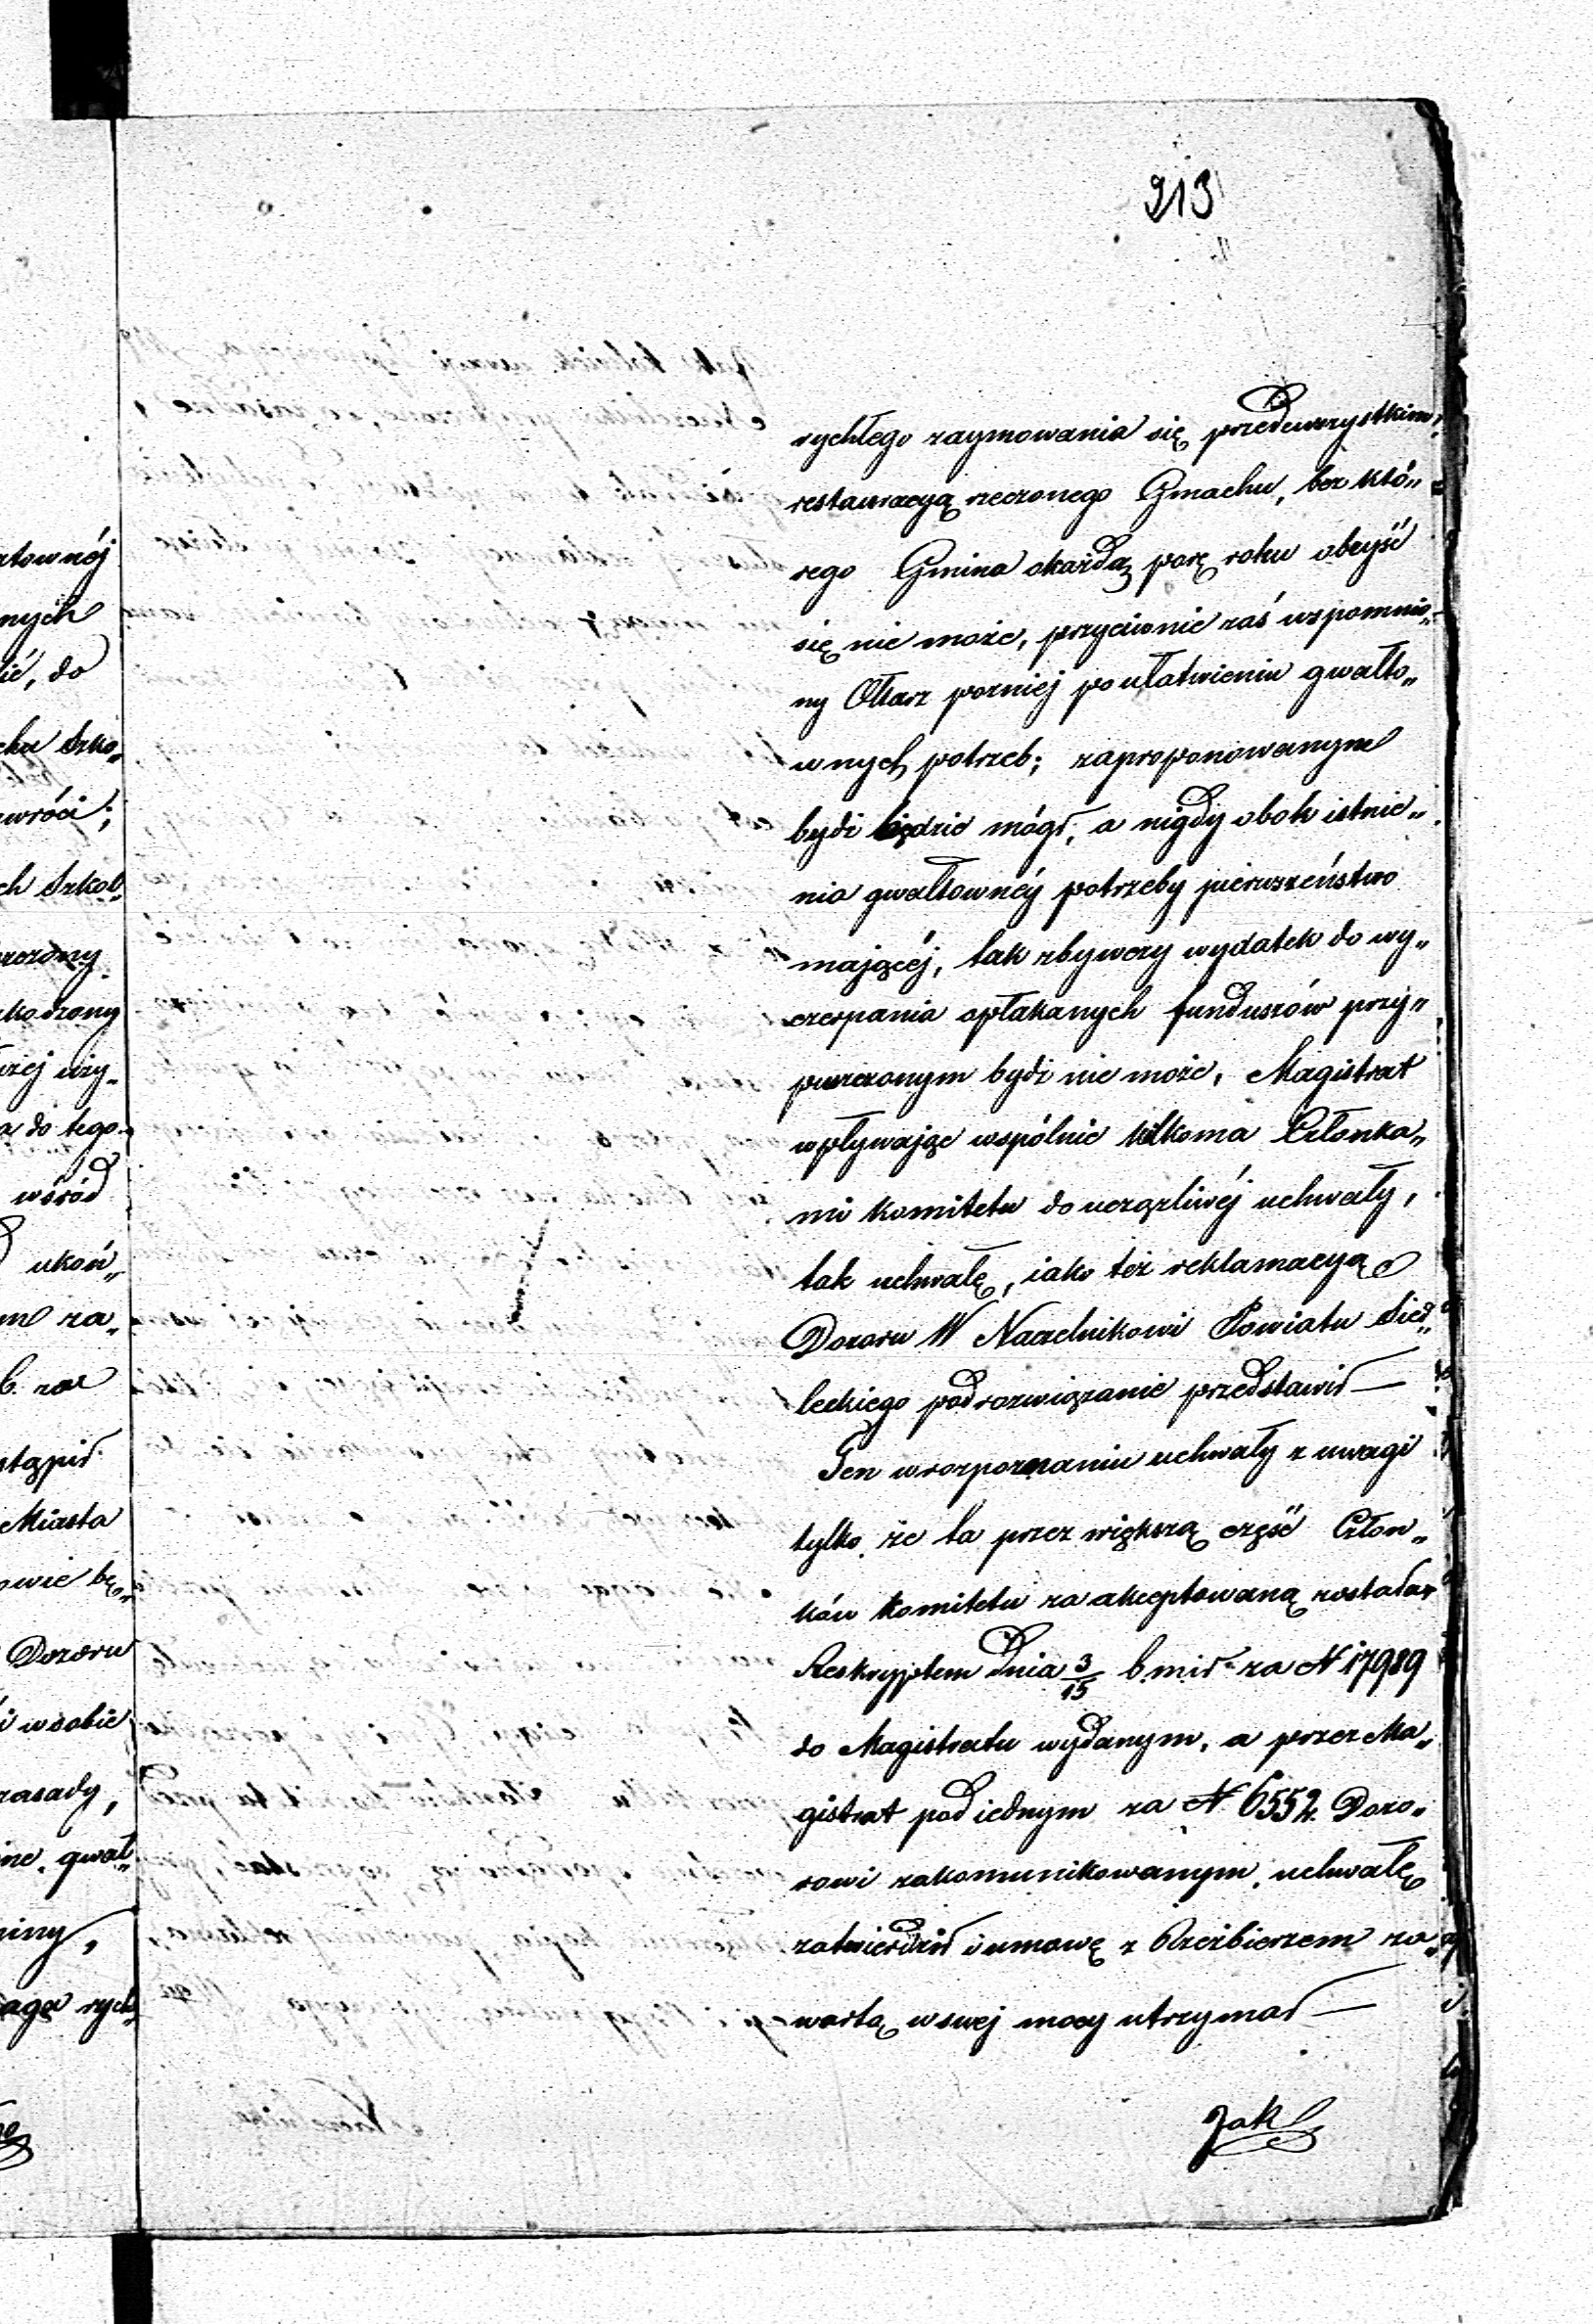 213
rychłego zaymowania się przedewszystkiem
restauracyą rzeczonego Gmachu, bez któ„
rego Gmina okażdą porę roku obeyść
się nie może, przyciwnie zaś wspomnio„
ny Ołtarz pozniej po ułatwieniu gwałto„
wnych potrzeb; zaproponowanym
bydź będzie mógł, a nigdy obok istnie„
nia gwałtownéy potrzeby pierwszeństwo
maiącéj, tak zbyweczy wydatek do wy„
czerpania opłakanych funduszów przy„
puszczonym bydź nie może, Magistrat
wpływając wspólnie kilkoma Członka„
mi Komitetu do uczązliwéj uchwały,
tak uchwałę, iako też reklamacyą
Dozoru W Naczelnikowi Powiatu Sied„
leckiego pod rozwiązanie przedstawił —
Ten w rozpoznaniu uchwały z uwagi
tylko że ta przez większą część Człon„
ków Komitetu za akceptowaną została
Reskryptem dnia 3/15 b. mił za N 17989
do Magistratu wydanym, a przez Ma„
gistrat pod iednym za N. 6552. Dozo„
rowi zakomunikowanym, uchwałę
zatwierdził i umowę z Rzeźbierzem za„
wartą w swej mocy utrzymał —
Jak
atownéj
nych
ić, do
chu Szko„
wróci;
ch Szkol„
kodzony
a do tego
wśród
ukoń„
za„
stąpił
Miasta
owie bę„
Dozoru
i w sobie
zasady,
gwał„
miny,